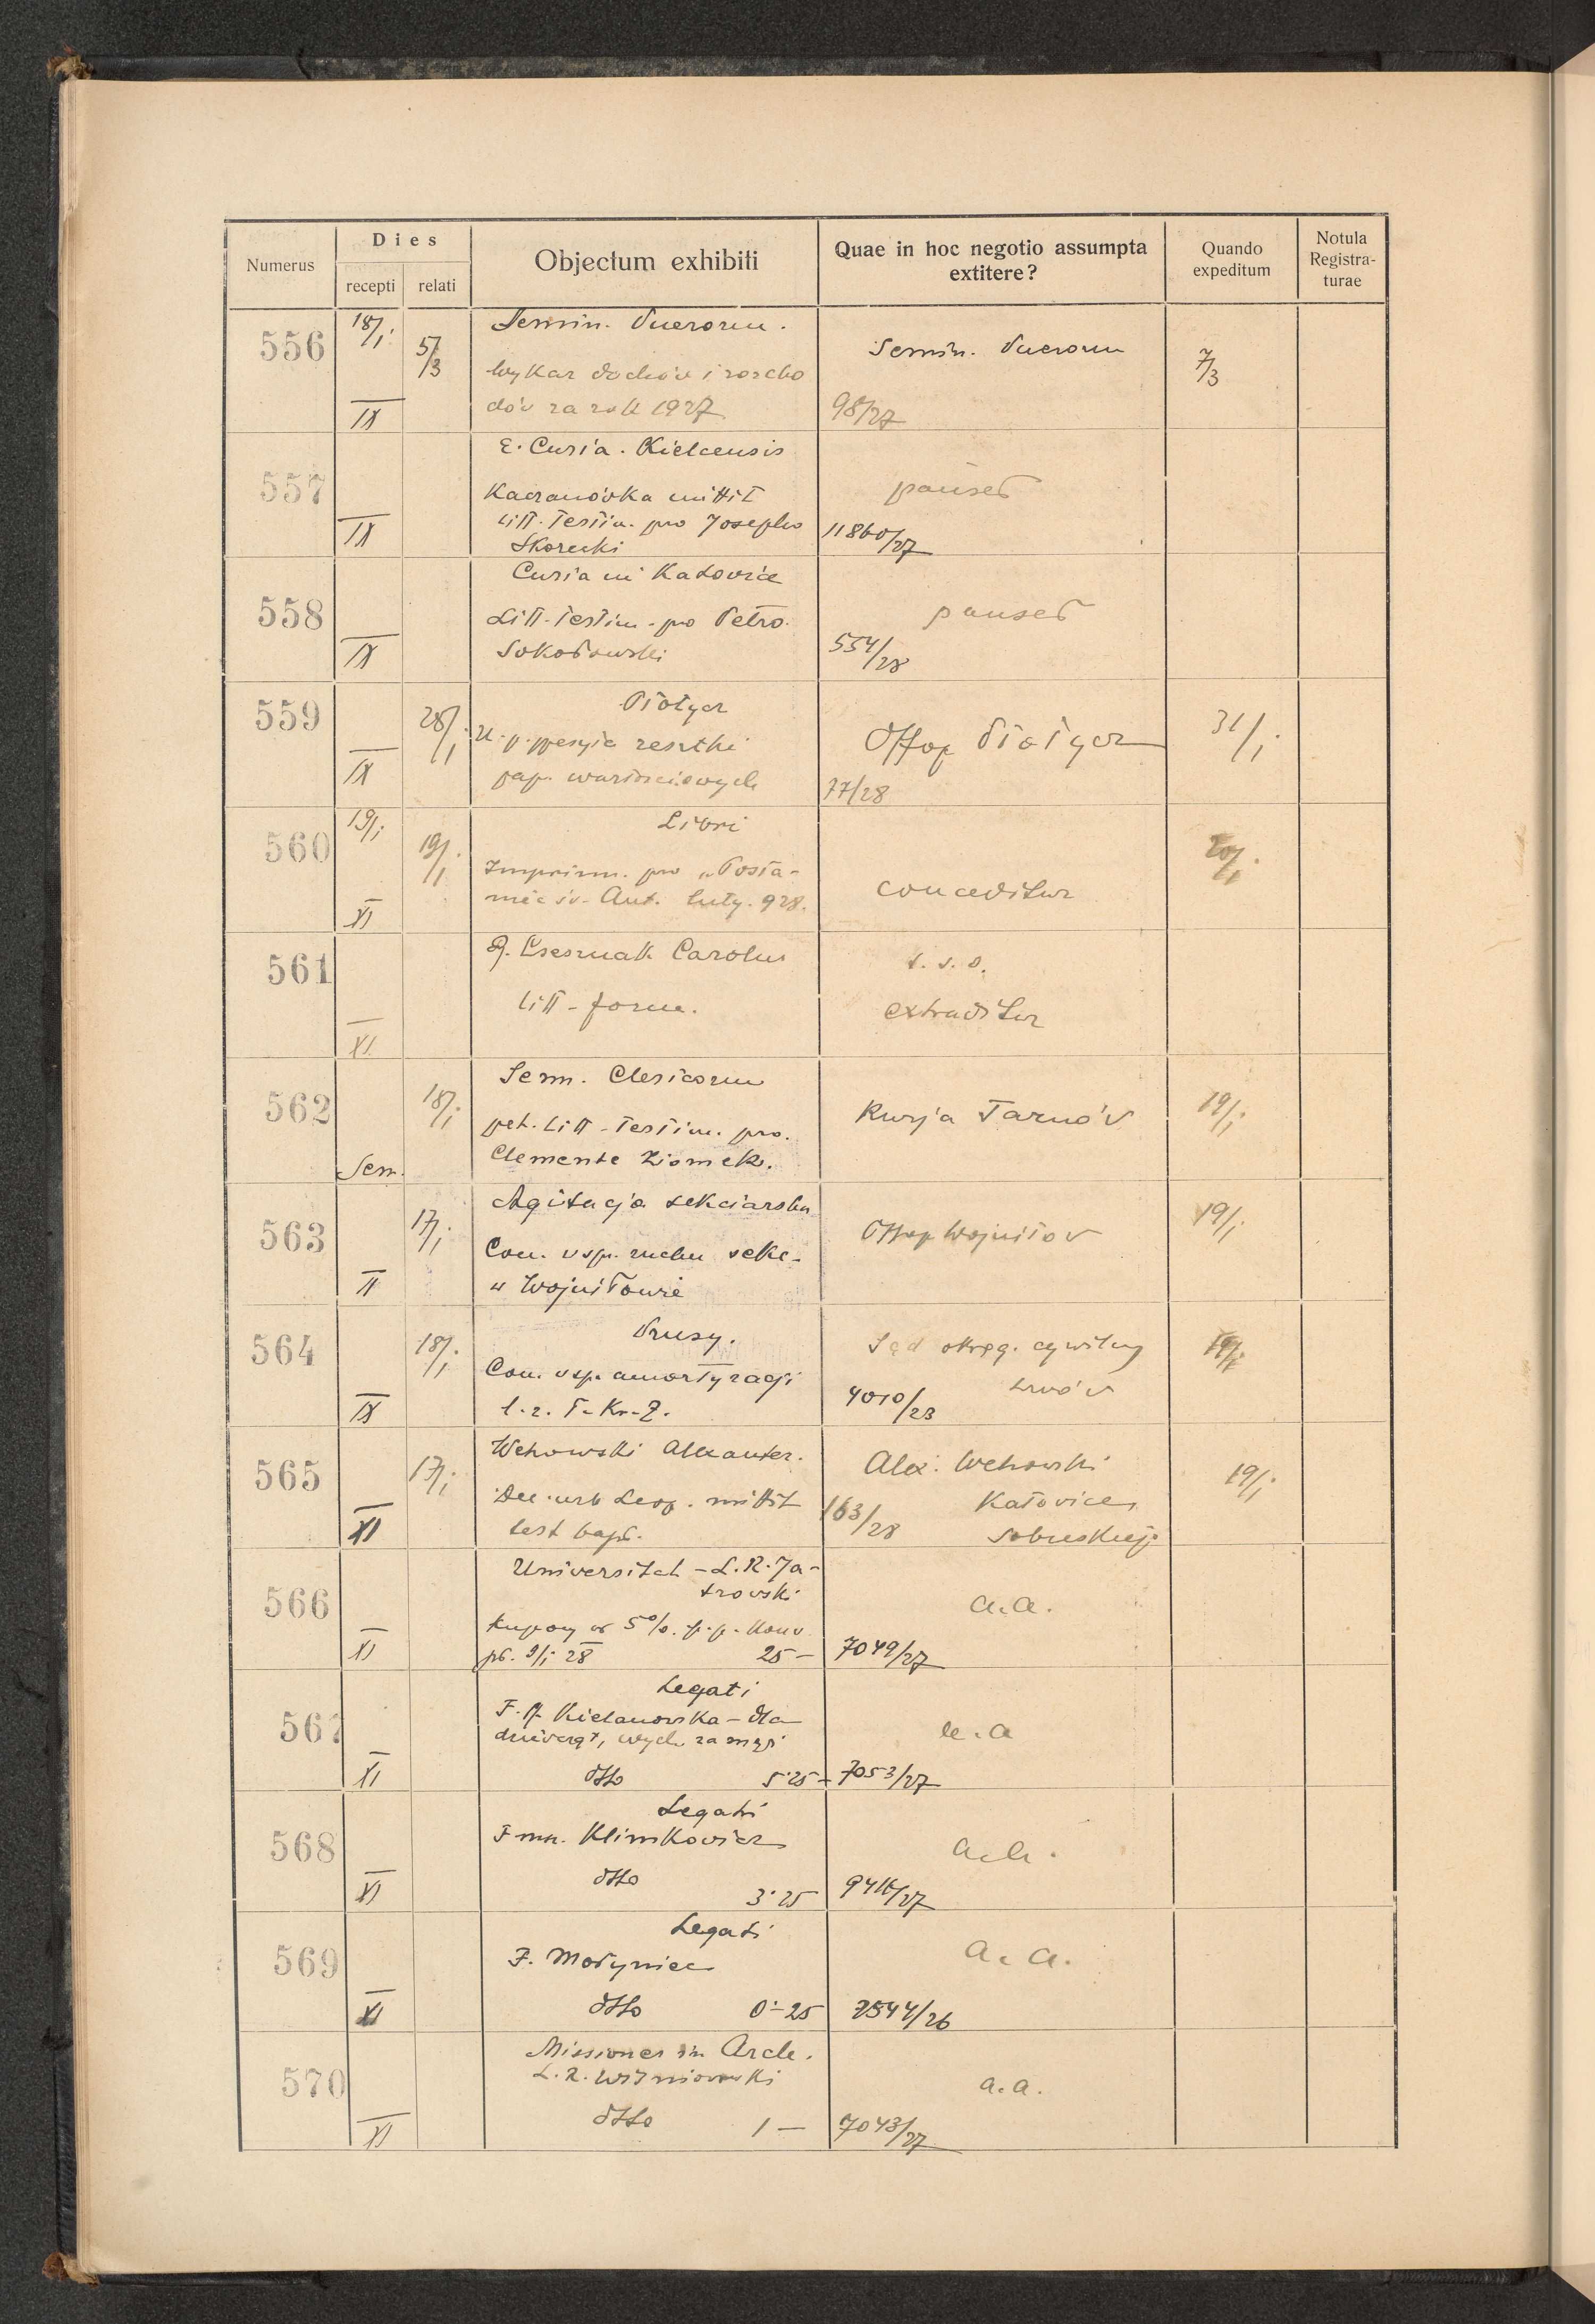 Numerus
Dies
recepti
relati
Objectum exhibiti
Quae in hoc negotio assumpta
extitere?
Quando
expeditum
Notula
Registra-
turae
556
18/I
5/3
IX
Semin. Puerorum.
Wykaz dochów i rozcho
dów za rok 1927
Semin. Puerorum
98/27
7/3
557
IX
E. Curia. Kielcensis
Kaczanówka mittit
litt. testim. pro Josepho
Skorecki
11860/27
558
IX
Curia in Katovice
Litt. testim. pro Petro
Sokołowski
554/28
559
28/I
IX
resztki
pap. wartościowych
77/28
31/I
560
19/I
19/I
XI
Libri
Imprim. pro „Posła-
niec św. Ant. luty. 928.
conceditur
20/I
561
XI
Carolus
litt. form.
s. s. o.
extraditur
562
18/I
Sem.
Sem. Clericorum
pet. Litt. testim. pro.
Clemente Ziomek.
Kurja Tarnów
19/I
563
17/I
II
Agitacja sekciarska
Con. v sp. ruchu sekc.
w Wojniłowie
Offop Wojniłov
19/I
564
18/I
IX
Prusy.
Con. v sp. amortyzacji
l. z. T. Kr. Z.
Sąd okręg. cywilny
Lwów
4010/23
19/I
565
17/I
XI
Wehowski Alexander.
Dec. urb Leop. mittit
test bapt.
Alex. Wehowski
Katovice
163/28
19/I
566
XI
Universitet - L. R. Ja-
trovski
Kupony od 5% p. p. Konv
pł. 2/I 28 25 –
a. a.
7049/27
567
XI
Legati
F. A. Kielanowska - dla
dziewcząt, wych. za mąż
dtto 5·25
a. a
7053/27
568
XI
Legati
F mn. Klimkovicz
dtto
3·25
a. a.
569
XI
Legati
F. Mołyniec
dtto 0·–25
a. a.
7544/26
570
XI
Missiones in Arch.
L. R. Wiśniowski
dtto 1 –
a. a.
7043/27